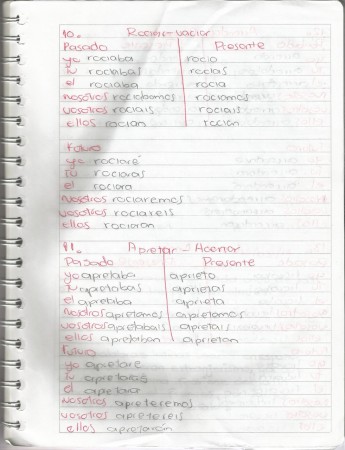 10. Rociar-vaciar
Pasado Presente
yo rociaba rocio
tu rociabas rocias
el rociaba rocia
nosotros rociabamos rociamos
vosotros rociais rociais
ellos rocian rocian
Futuro
yo rociaré
tu rociaras
el rociara
nosotros rociaremos
vosotros rociareis
ellos rociaran
11. Apretar-Acertar
Pasado Presente
yo apretaba aprieto
tu apretabas aprietas
el apretaba aprieta
nosotros apretamos apretamos
vosotros apretabais apretais
ellos apretaban aprietan
Futuro
yo apretare
tu apretaras
el apretara
nosotros apreteremos
vosotros apretereis
ellos apretarán